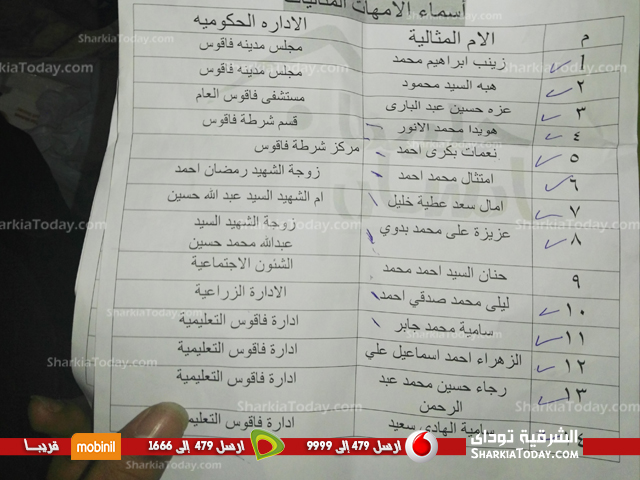 أسماء الأمهات المثاليات
م الام المثالية الاداره الحكوميه
١ زينب ابراهيم محمد مجلس مدينه فاقوس
٢ هبه السيد محمود مجلس مدينه فاقوس
٣ عزه حسين عبد البارى مستشفى فاقوس العام
٤ هويدا محمد الانور قسم شرطة فاقوس
٥ نعمات بكرى احمد مركز شرطة فاقوس
٦ امتثال محمد احمد زوجة الشهيد رمضان احمد
٧ امال سعد عطية خليل ام الشهيد السيد عبد الله حسين
٨ عزيزة على محمد بدوي زوجة الشهيد السيد
عبدالله محمد حسين
٩ حنان السيد احمد محمد الشئون الاجتماعية
١٠ ليلى محمد صدقي احمد الادارة الزراعية
١١ سامية محمد جابر ادارة فاقوس التعليمية
١٢ الزهراء احمد اسماعيل علي ادارة فاقوس التعليمية
١٣ رجاء حسين محمد عبد ادارة فاقوس التعليمية
الرحمن
سامية الهادي سعيد ادارة فاقوس التعليمية
الشرقية توداى ارسل 479 إلى 9999 ارسل 479 إلى 1666 mobinil قريبا
SHARKIATODAY.COM
SharkiaToday.com